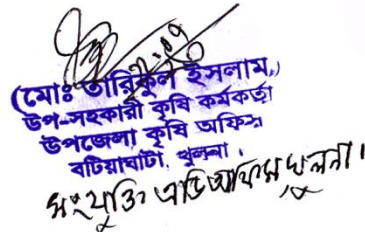 (মোঃ তারিকুল ইসলাম)
উপ-সহকারী কৃষি কর্মকর্তা
উপজেলা কৃষি অফিস
বটিয়াঘাটা, খুলনা।
সংযুক্তি এডি অফিস খুলনা।